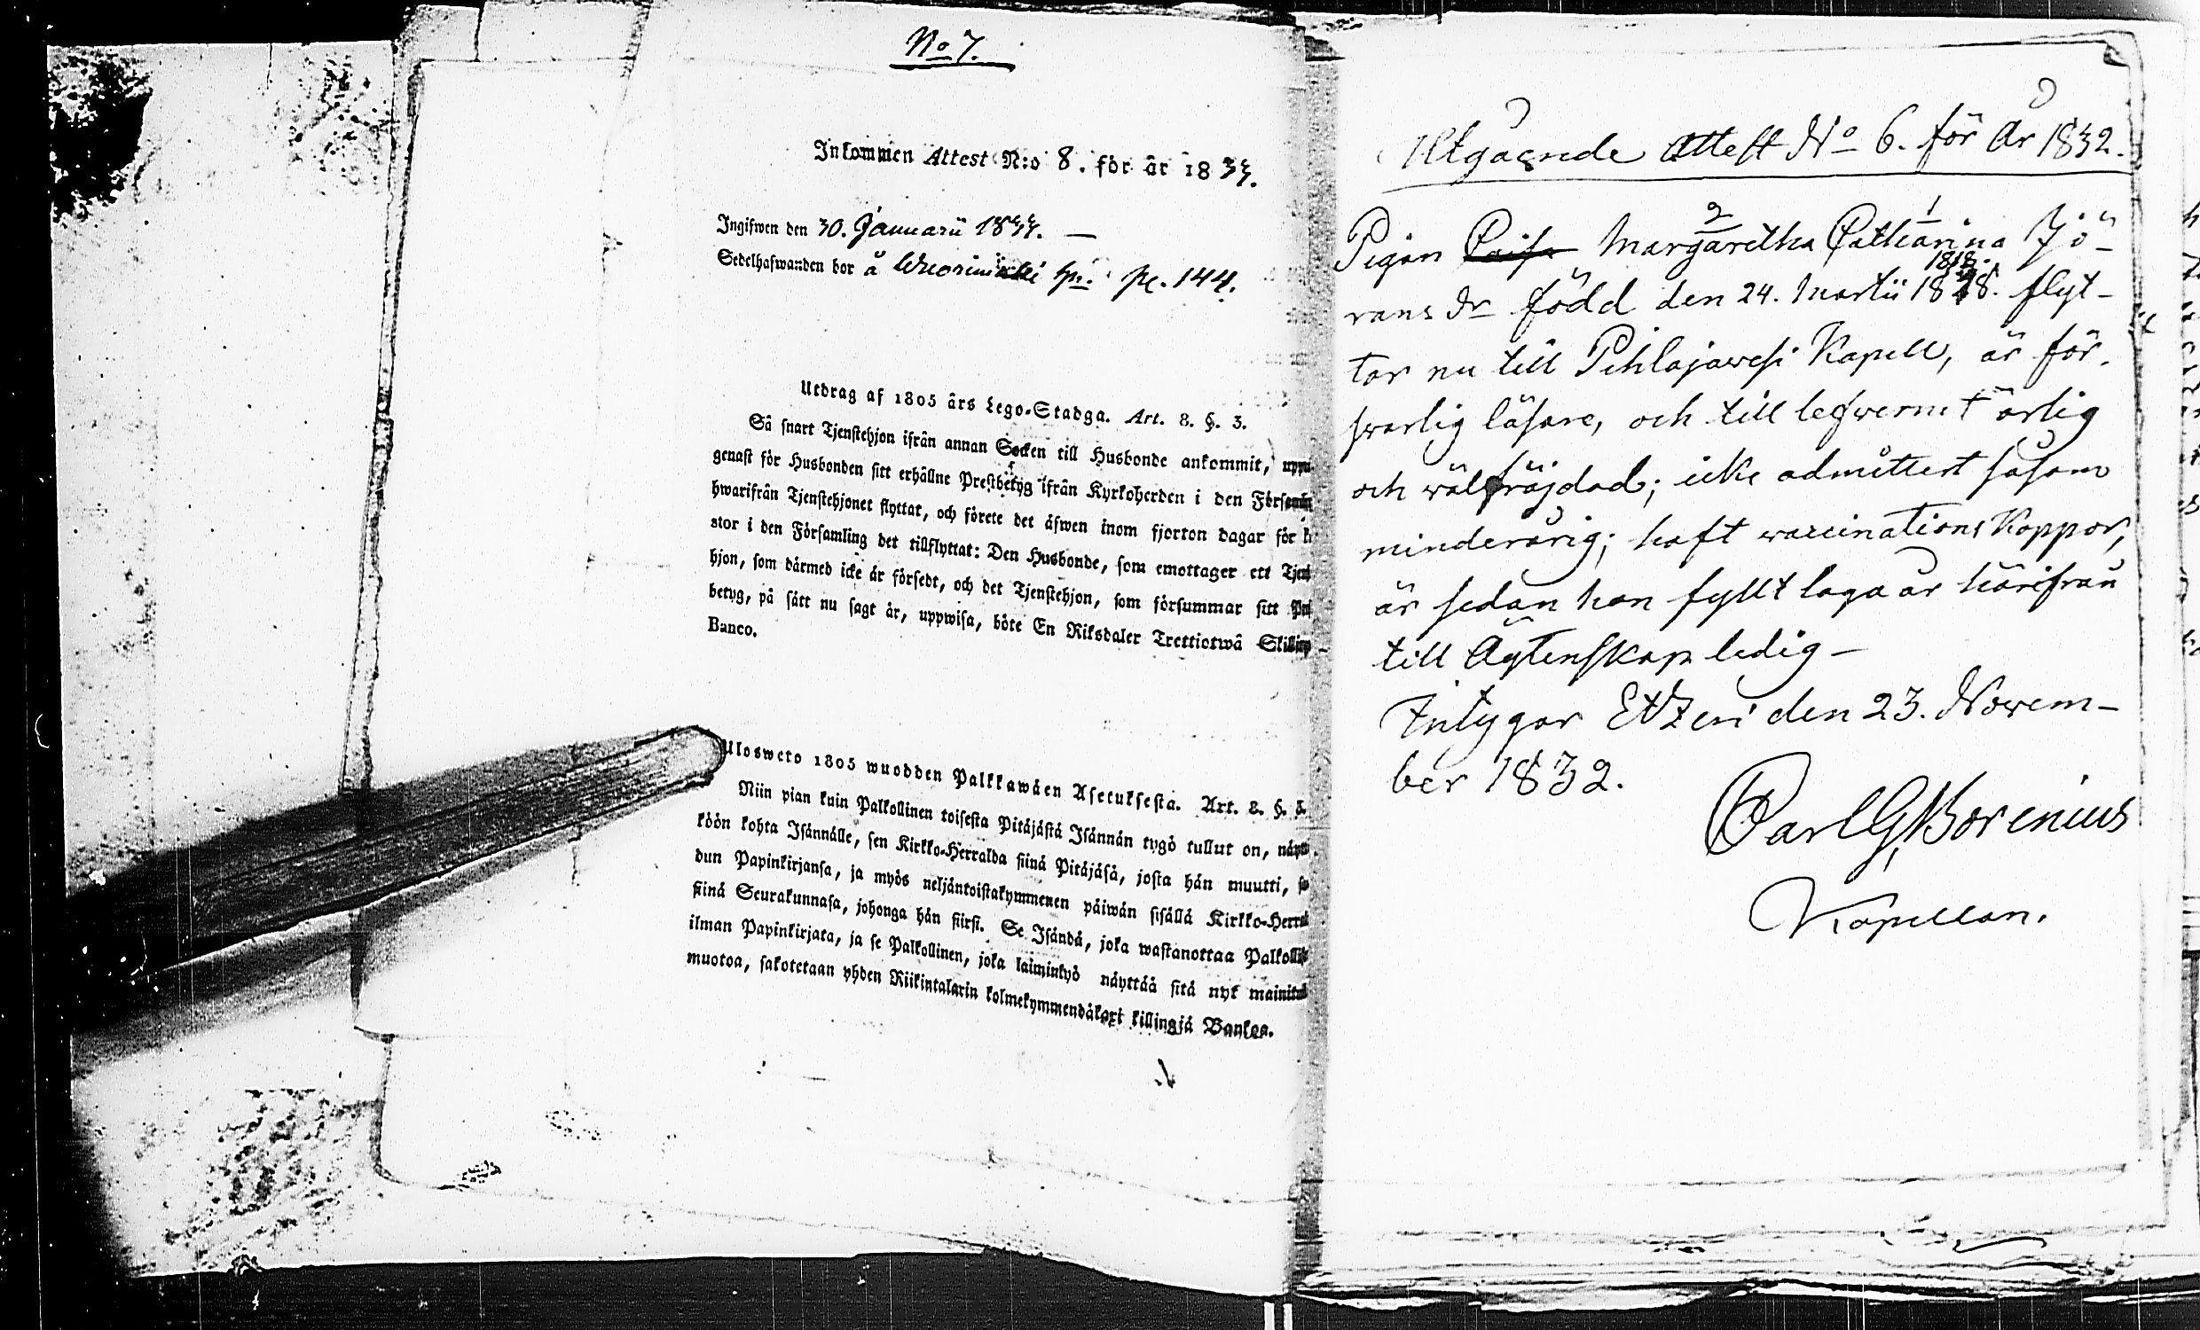 No 7.
Inkommen Attest N:o 8. för år 1833.
Ingifwen den 30. Januarii 1833. —
Sedelhafwanden bor å Wuorimäki p. 144.
Utdrag af 1805 års Lego-Stadga. Art. 8. §. 3.
Så snart Tjenstehjon ifrån annan Socken till Husbonde ankommit,
genast för Husbonden sitt erhållne Prestbetyg ifrån Kyrkoherden i den
hwarifrån Tjenstehjonet flyttat, och förete det äfwen inom fjorton dagar för
stor i den Församling det tillflyttat: Den Husbonde, som emottager ett
hjon, som därmed icke är försedt, och det Tjenstehjon, som försummar sitt
betyg, på sätt nu sagt är, uppwisa, böte En Riksdaler Trettiotwå Skilling
Banco.
Ulosweto 1805 wuodden Palkkawäen Asetuksesta. Art. 8. §. 3.
Niin pian kuin Palkollinen toisesta Pitäjästä Isännän tygö tullut on,
köön kohta Isännälle, sen Kirkko-Herralda siinä Pitäjäsä, josta hän muutti,
dun Papinkirjansa, ja myös neljäntoistakymmenen päiwän sisällä Kirkko-Herra
siinä Seurakunnasa, johonga hän siirsi. Se Isändä, joka wastanottaa
ilman Papinkirjata, ja se Palkollinen, joka laiminlyö näyttää sitä nyt
muotoa, sakotetaan yhden Riikintalarin kolmekymmendäkaxi killingiä Bankoa.
Utgående Attest No 6. för År 1832.
2 1
Pigan Caisa Margaretha Catharina Jö-
1818.
rans Dr född den 24. Martii 1818. flyt-
tar nu till Pihlajawesi Kapell, är för-
swarlig läsare, och till lefwernet ärlig
och wälfräjdad; icke admitterd såsom
minderårig; haft waccinations Koppor,
är sedan hon fyllt laga år härifrån
till Ägtenskap ledig —
Intygar Etzeri den 23. Novem-
ber 1832.
Carl G. Borenius
Kapellan.